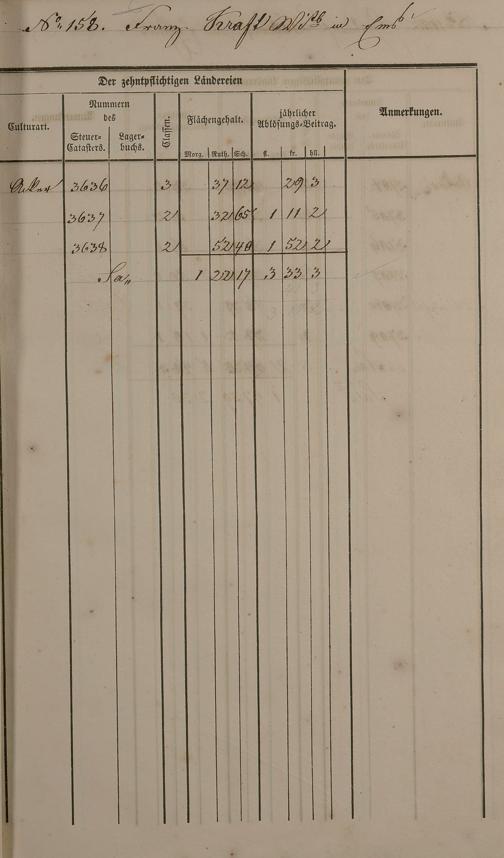 No 158. Franz Kraft Wtb in Ems
Der zehntpflichtigen Ländereien
Culturart.
Nummern des
Steuer-Catasters.
Lager-buchs.
Classen.
Flächengehalt.
Morg. Ruth. Sch.
jährlicher Ablösungs-Beitrag.
fl. kr. hll.
Anmerkungen.
Acker 3636 3 37 12 29 3
3637 2 32 65 1 11 2
3638 2 52 40 1 52 2
Sa. 1 22 17 3 33 3